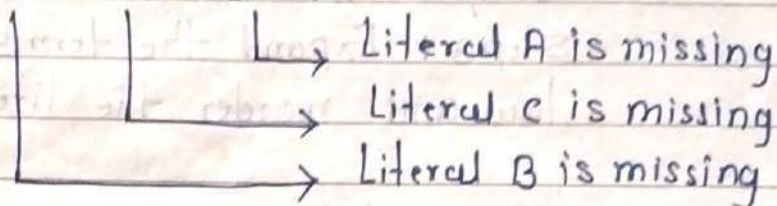 Literal A is missing
Literal C is missing
Literal B is missing